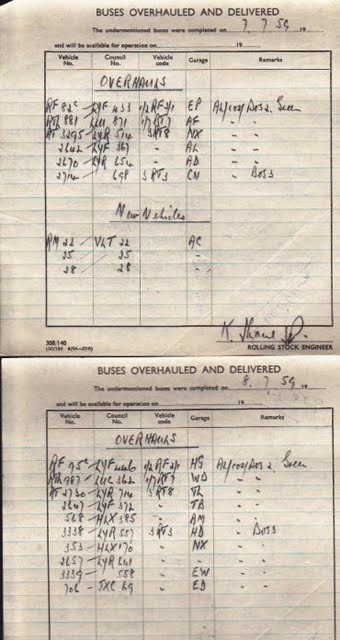 BUSES OVERHAULED AND DELIVERED
The undermentioned buses were completed on 7. 7. 59 19
and will be available for operation on 19
Vehicle No. Council No. Vehicle code Garage Remarks
OVERHAULS
RF 82c LYF 433 1/2 RF2/1 EP
881 871 1/7 RT7 AF " "
RT 3295 LYR 514 3RT8 NX " "
2642 LYF 367 " AL " "
2670 LYR 654 " AD " "
2714 698 3RT3 CN " Doss
New Vehicles
RM 22 VLT 22 AC
25 25 "
28 28 "
308/140
ROLLING STOCK ENGINEER
BUSES OVERHAULED AND DELIVERED
The undermentioned buses were completed on 8. 7. 59 19
and will be available for operation on 19
Vehicle No. Council No. Vehicle code Garage Remarks
OVERHAULS
RF 95c LYF 446 1/2 RF2/1 HG
987 362 1/7 RT7 WD " "
RT 2730 LYR 714 3RT8 TL " "
2647 LYF 372 " TB " "
568 HLX 385 " AM " "
3338 LYR 557 3RT3 HD " Doss
353 HLX 170 " NX " "
2657 LYR 641 " " " "
3339 558 " EW " "
706 JXC 69 " ED " "